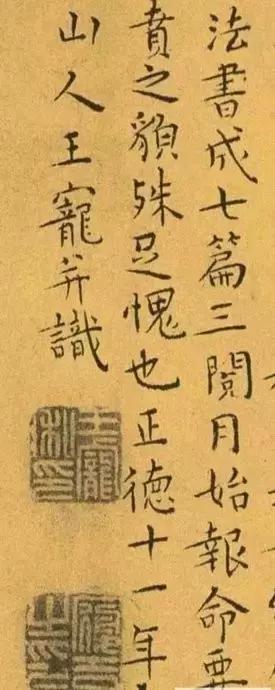 法書成七篇三閱月始報命要
賁之殊足愧也正德十一年
山人王寵并識
王寵私印